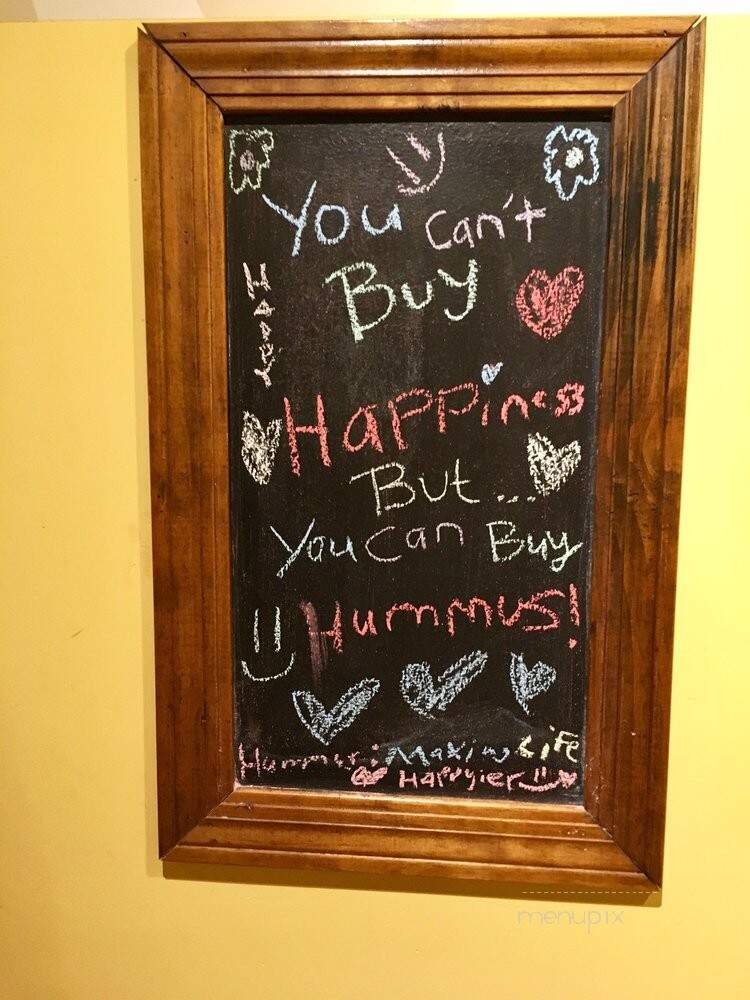 You can't
Buy
Happiness
But...
You can Buy
Hummus!
Hummus: Making Life
Happyier
menupix